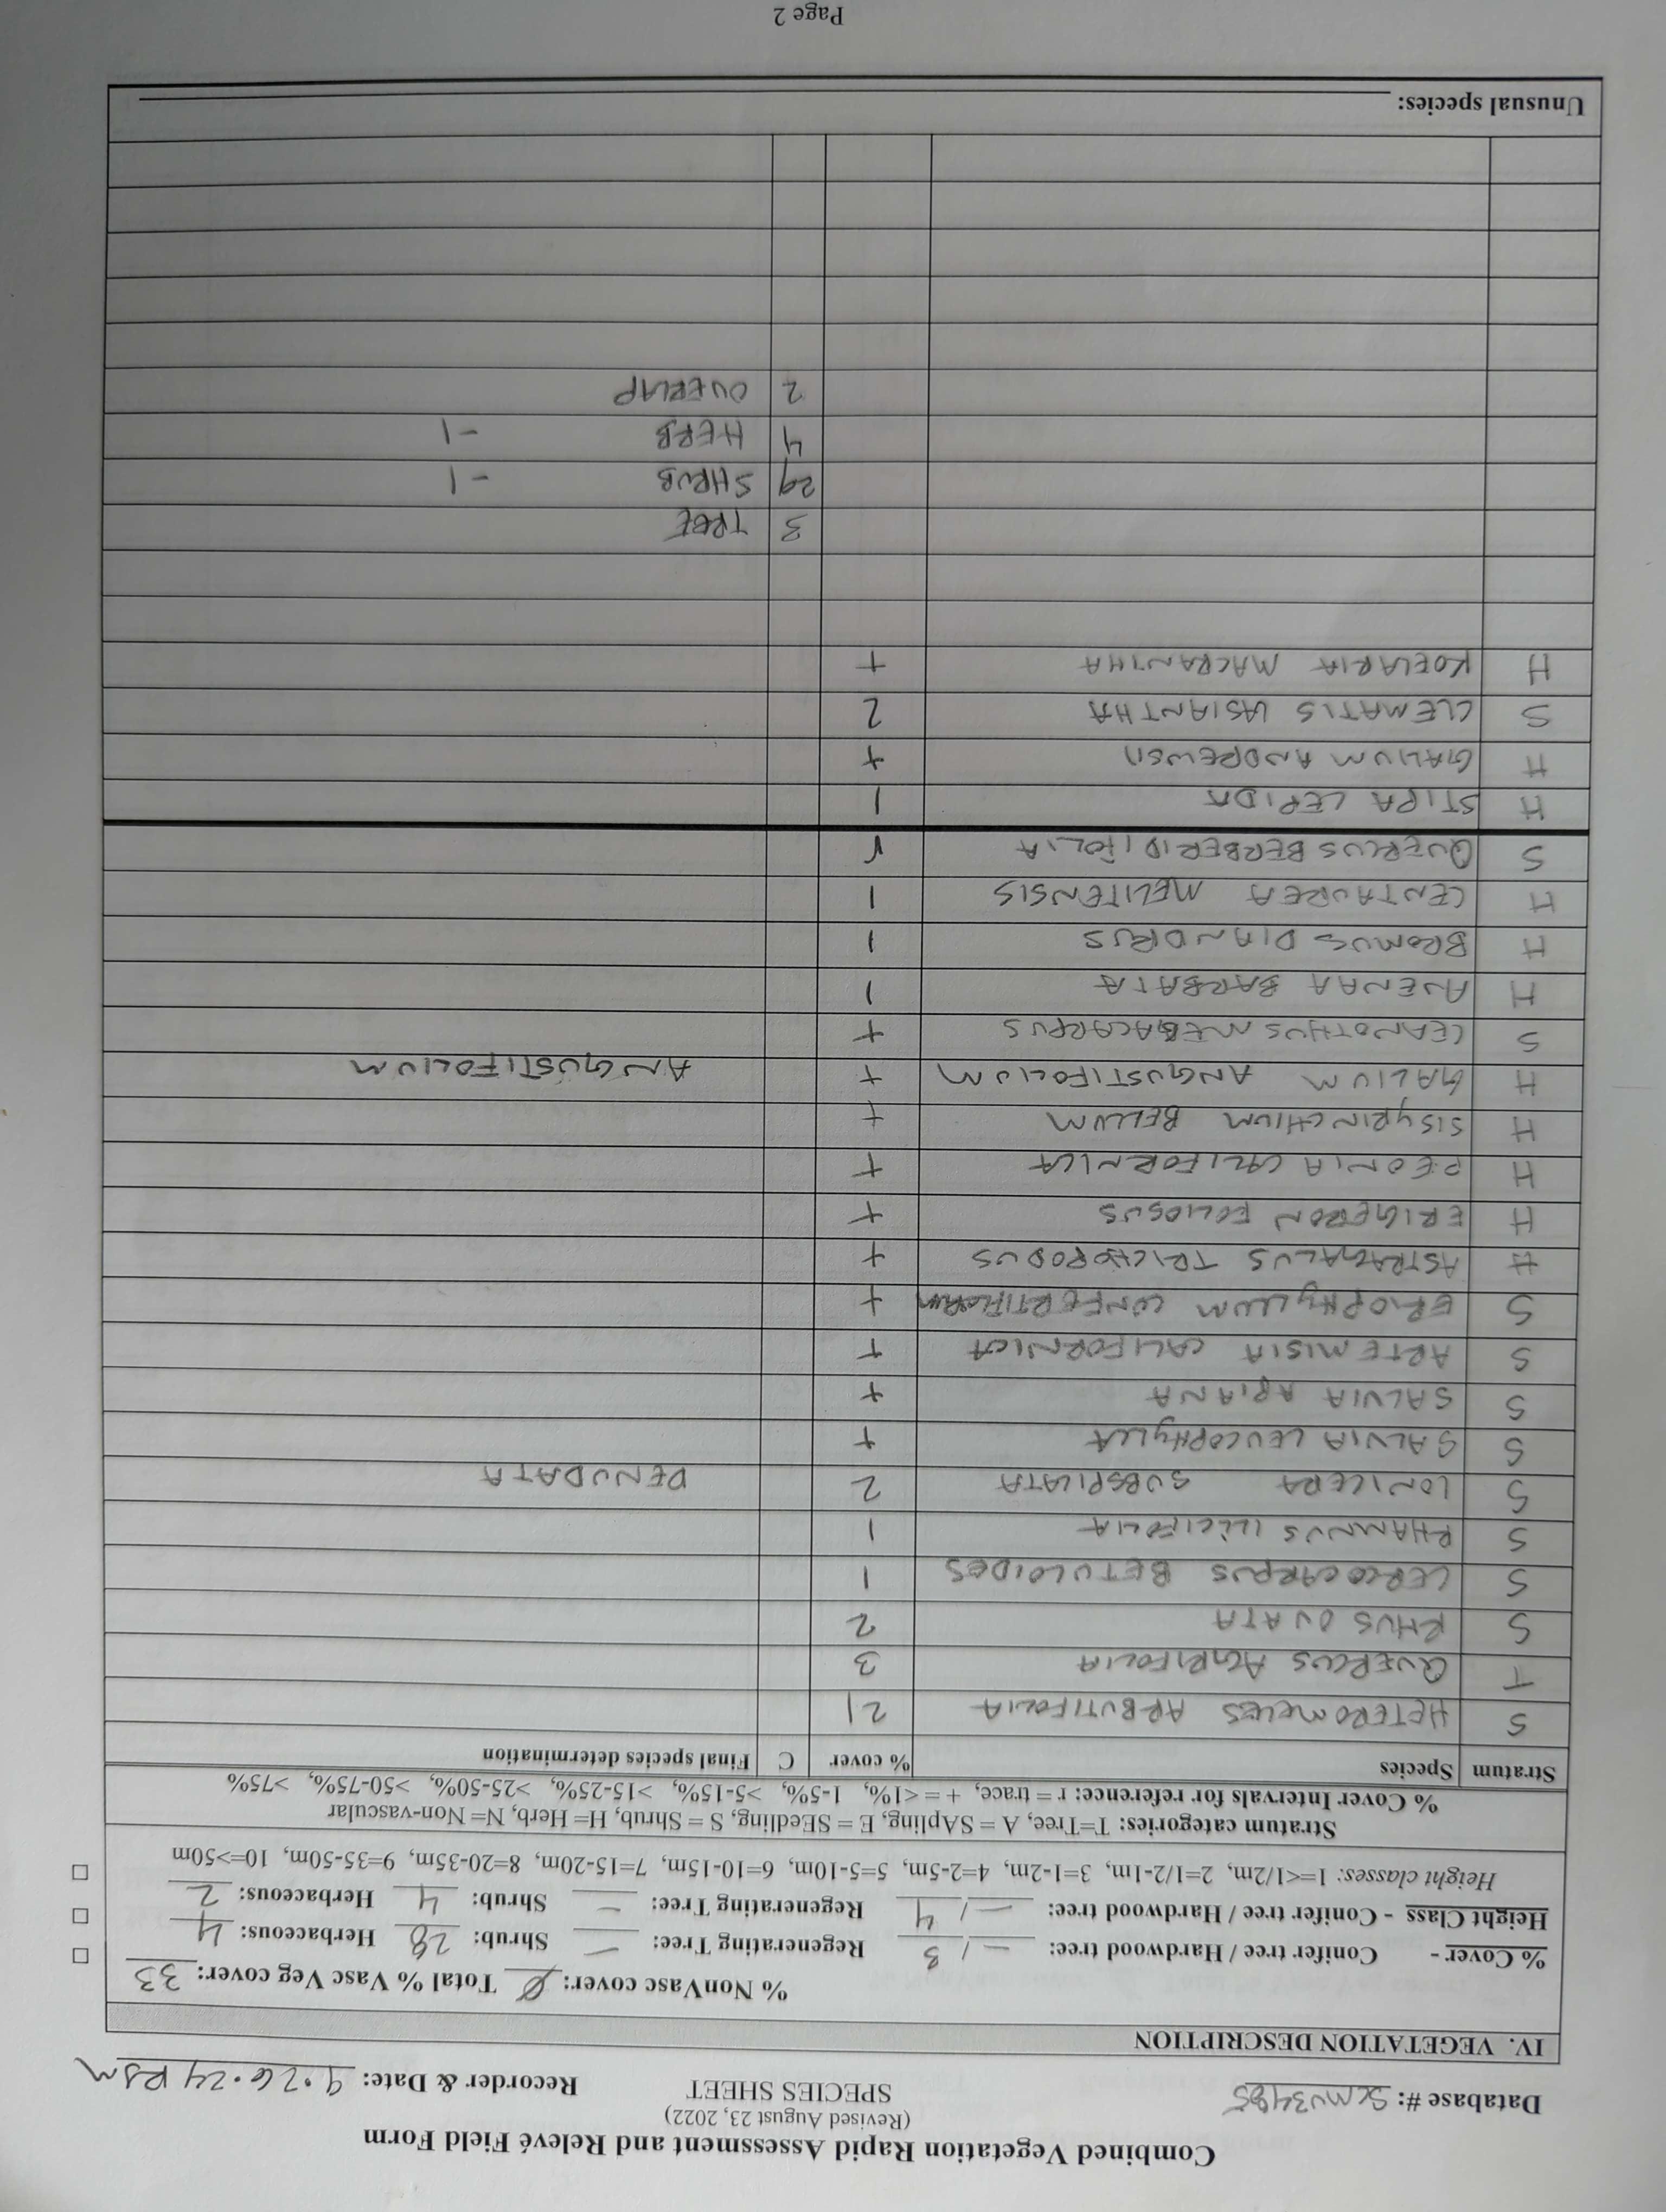 Combined Vegetation Rapid Assessment and Relevé Field Form
(Revised August 23, 2022)
Database #: SCMV3485 SPECIES SHEET Recorder & Date: 9.26.24 RSM
IV. VEGETATION DESCRIPTION
% NonVasc cover: Ø Total % Vasc Veg cover: 33
% Cover - Conifer tree / Hardwood tree: — / 3 Regenerating Tree: — Shrub: 28 Herbaceous: 4
Height Class - Conifer tree / Hardwood tree: — / 4 Regenerating Tree: — Shrub: 4 Herbaceous: 2
Height classes: 1=<1/2m, 2=1/2-1m, 3=1-2m, 4=2-5m, 5=5-10m, 6=10-15m, 7=15-20m, 8=20-35m, 9=35-50m, 10=>50m
Stratum categories: T=Tree, A = SApling, E = SEedling, S = Shrub, H= Herb, N= Non-vascular
% Cover Intervals for reference: r = trace, + = <1%, 1-5%, >5-15%, >15-25%, >25-50%, >50-75%, >75%
Stratum Species % cover C Final species determination
S HETEROMELES ARBUTIFOLIA 21
T QUERCUS AGRIFOLIA 3
S RHUS OVATA 2
S CERCOCARPUS BETULOIDES 1
S RHAMNUS ILICIFOLIA 1
S LONICERA SUBSPICATA 2 DENUDATA
S SALVIA LEUCOPHYLLA +
S SALVIA APIANA +
S ARTEMISIA CALIFORNICA +
S ERIOPHYLLUM CONFERTIFLORUM +
H ASTRAGALUS TRICHOPODUS +
H ERIGERON FOLIOSUS +
H PEONIA CALIFORNICA +
H SISYRINCHIUM BELLUM +
H GALIUM ANGUSTIFOLIUM + ANGUSTIFOLIUM
S CEANOTHUS MEGACARPUS +
H AVENAA BARBATA 1
H BROMUS DIANDRUS 1
H CENTAUREA MELITENSIS 1
S QUERCUS BERBERIDIFOLIA r
H STIPA LEPIDA 1
H GALIUM ANDREWSII +
S CLEMATIS LASIANTHA 2
H KOELARIA MACRANTHA +
3 TREE
29 SHRUB -1
4 HERB -1
2 OVERLAP
Unusual species:
Page 2